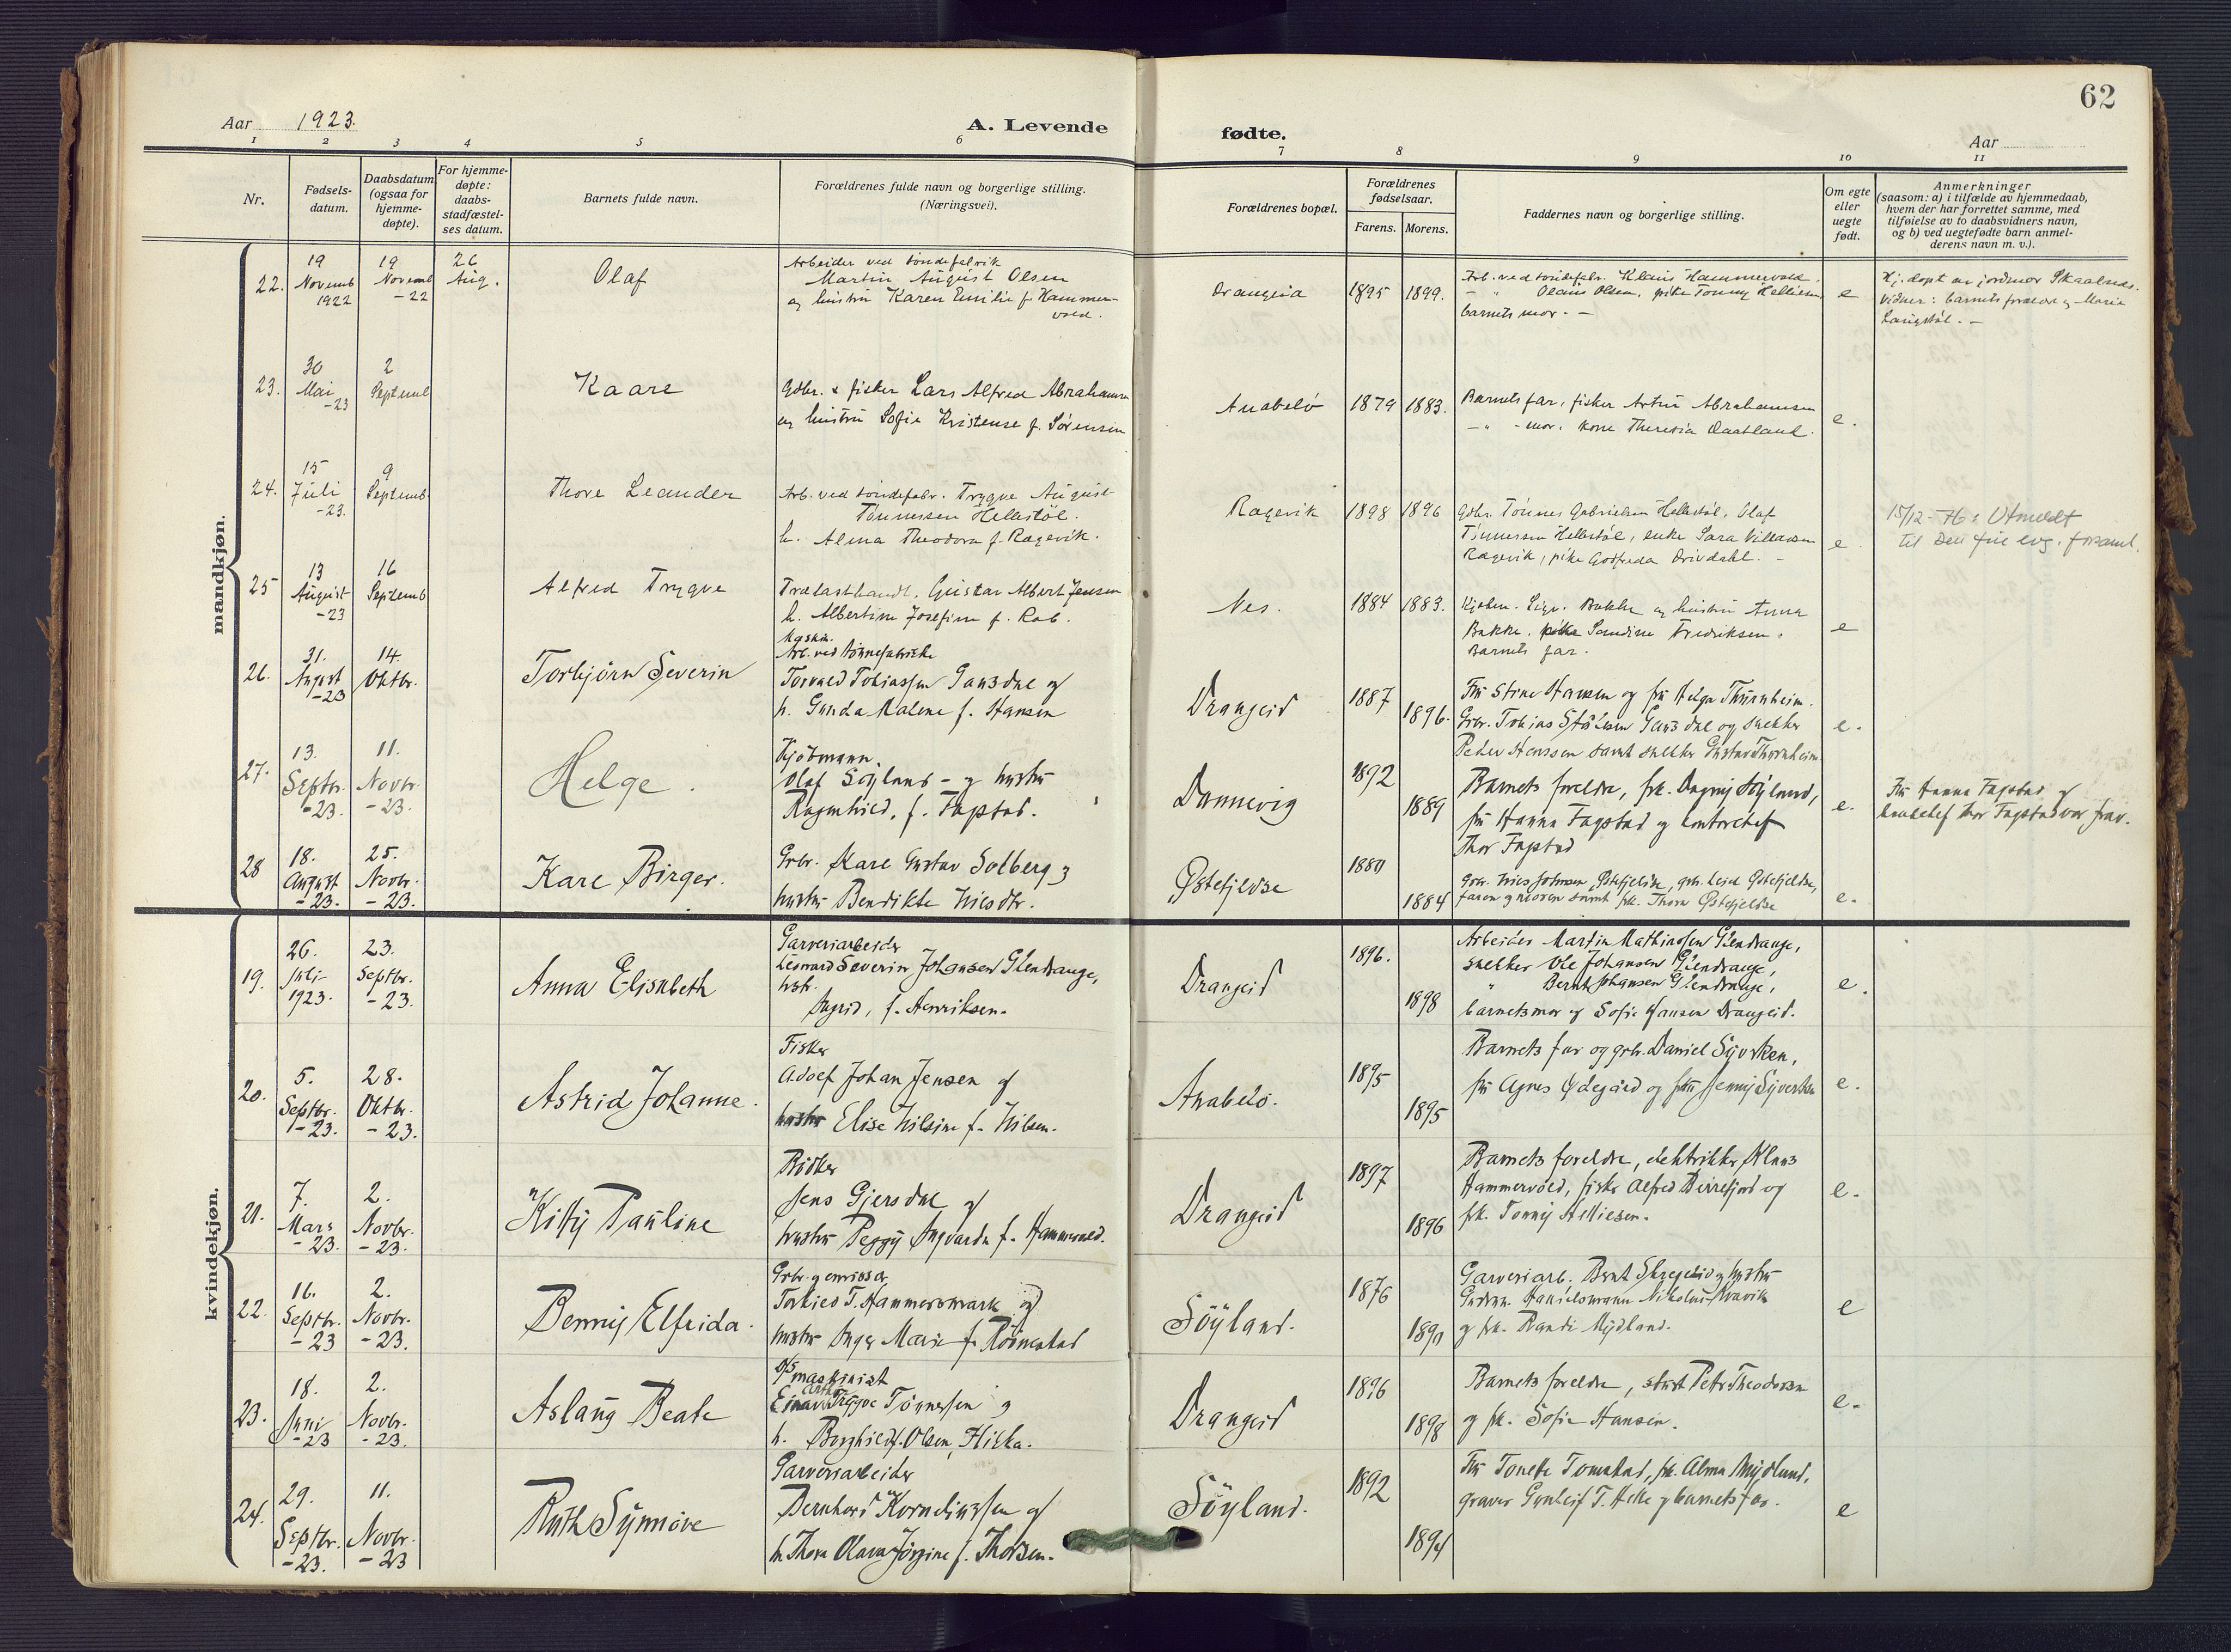 62
Aar 1923.
A. Levende
fødte.
Aar
1 2 3 4 5 6 7 8 9 10 11
Nr.
Fødsels-
datum.
Daabsdatum
(ogsaa for
hjemme-
døpte).
For hjemme-
døpte:
daabs-
stadfæstel-
ses datum.
Barnets fulde navn.
Forældrenes fulde navn og borgerlige stilling.
(Næringsvei).
Forældrenes bopæl.
Forældrenes
fødselsaar.
Farens. Morens.
Faddernes navn og borgerlige stilling.
Om egte
eller
uegte
født.
Anmerkninger
(saasom: a) i tilfælde av hjemmedaab,
hvem der har forrettet samme, med
tilføielse av to daabsvidners navn,
og b) ved uegtefødte barn anmel-
derens navn m. v.).
mandkjøn.
22.
19
Novemb
1922
19
Novemb
-22
26
Aug.
Olaf
Arbeider ved tøndefabrik
Martin August Olsen
og hustru Karen Emilie f. Hammer-
vold.
Drangeid
1895
1899.
Arb. ved tøndefabr. Klaus Hammervold,
- " Olaus Olsen, pike Tonny Helliesen
barnets mor. -
e
Hj. døpt av jordmor Skaalnes.
Vidner: barnets forældre og Marie
23.
30
Mai
-23
2
Septemb
Kaare
Gdbr. & fisker Lars Alfred Abrahamsen
og hustru Sofie Kristense f. Sørensen
Anabelø
1879
1883.
Barnets far, fisker Artur Abrahamsen
- " - mor, kone Theresia
e.
24.
15
Juli
-23.
9
Septemb.
Thore Leander
Arb. ved tøndefabr. Trygve August
Tønnessen Hellestøl.
h. Alma Theodora f. Ragevik.
Ragevik
1898
1896
Gdbr. Tønnes Gabrielsen Hellestøl, Olaf
Tønnessen Hellestøl, enke Sara Villadsen
Ragevik, pike Godfreda Drivdahl. -
e
15/12-76: Utmeldt
til Den frie evg. forsaml.
25
13
August
-23
16
Septemb
Alfred Trygve
Trælasthandl. Gustav Albert Jensen
h. Albertine Josefine f. Rob.
Nes.
1884
1883.
Kjøbm. Sigv. Bakke og hustru Anna
Bakke. pike Sandine Fredriksen.
Barnets far.
e
26.
31.
August
-23
14.
Oktbr.
Torbjørn Severin
Maskin.
Arb. ved tønnefabrikke
Torvald Tobiassen Gausdal og
h. Gunda Malene f. Hansen
Drangeid
1887
1896.
Fru Stine Hansen og fru Helga Thurnheim.
Grbr. Tobias Gausdal og snekker
Peder Hanssen samt snekker Gustav Thurnheim
e.
27.
13.
Septbr.
-23.
11.
Novbr.
-23.
Helge.
Kjøbmann.
Olaf Søyland - og hustru
Ragnhild, f. Fagstad.
Dannevig
1892
1889
Barnets foreldre, frk. Dagny Søyland,
fru Hanna Fagstad og kontorchef
Thor Fagstad
e.
Fru Hanna Fagstad og
Thor Fagstad var frav.
28
18.
August
-23.
25.
Novbr.
-23.
Kare Birger.
Grbr. Kare Gustav Solberg og
hustru Bendikte Nilsdtr.
Østefjeldse
1884
Grbr. Nils Johnsen Østefjeldse,
faren og moren samt frk. Thora Østefjeldse
e.
kvindekjøn.
19.
26.
Juli
1923.
23.
Septbr.
-23.
Anna Elisabeth
Garveriarbeider
Leonard Severin Johansen Glendrange,
hstr.
Ingrid, f. Henriksen.
Drangeid
1896.
1898
Arbeider Martin Mathiassen Glendrange,
snekker Ole Johansen Glendrange,
" Bernt Johansen Glendrange,
barnets mor og Sofie Hansen Drangeid.
e.
20.
5.
Septbr.
-23.
28.
Oktbr.
-23.
Astrid Johanne.
Fisker
Adolf Johan Jensen og
hustru Elise Nilsine f. Nilsen.
Anabelø.
1895
1895
Barnets far og grbr. Daniel Syvertsen,
fru Agnes Ødegård og fru Jenny Syvertsen
e.
21.
7.
Mars
-23.
2.
Novbr.
-23.
Kitty Pauline
Bødker
Jens Gjersdal og
hustru Peggy Ingvarda f. Hammervold.
Drangeid
1897
1896
Barnets foreldre, elektriker Klaus
Hammervold, fisker Alfred Berrefjord og
frk. Tonny Helliesen.
e.
22.
16.
Septbr.
-23
2.
Novbr.
-23.
Benny Elfrida.
Grbr. og emissær
Torkild T. Hammersmark og
hustru Inger Marie f. Rødmestad
Søyland.
1876
Garveriarb. Bernt Skregelid og hustru
Gudrun. Handelsmann Nikolai
og frk. Randi Mydland.
e
23.
18.
Juni
-23
2.
Novbr.
-23.
Aslaug Beate
D/S maskinist
Einar Trygve Tønnessen og
h. Borghild f. Olsen, Hidra.
Drangeid
1896
1898
Barnets foreldre, Petr Theodorsen
og frk. Sofie Hansen.
e.
24.
29.
Septbr.
-23.
11.
Novbr.
-23
Ruth Synnøve
Garveriarbeider
Bernhard Korneliussen og
h. Thora Olava Jørgine f. Thorsen.
Søyland.
1892
1894
Fru Tonette Tomstad, frk. Alma Mydland,
graver Gunleif T. Helle og barnets far.
e